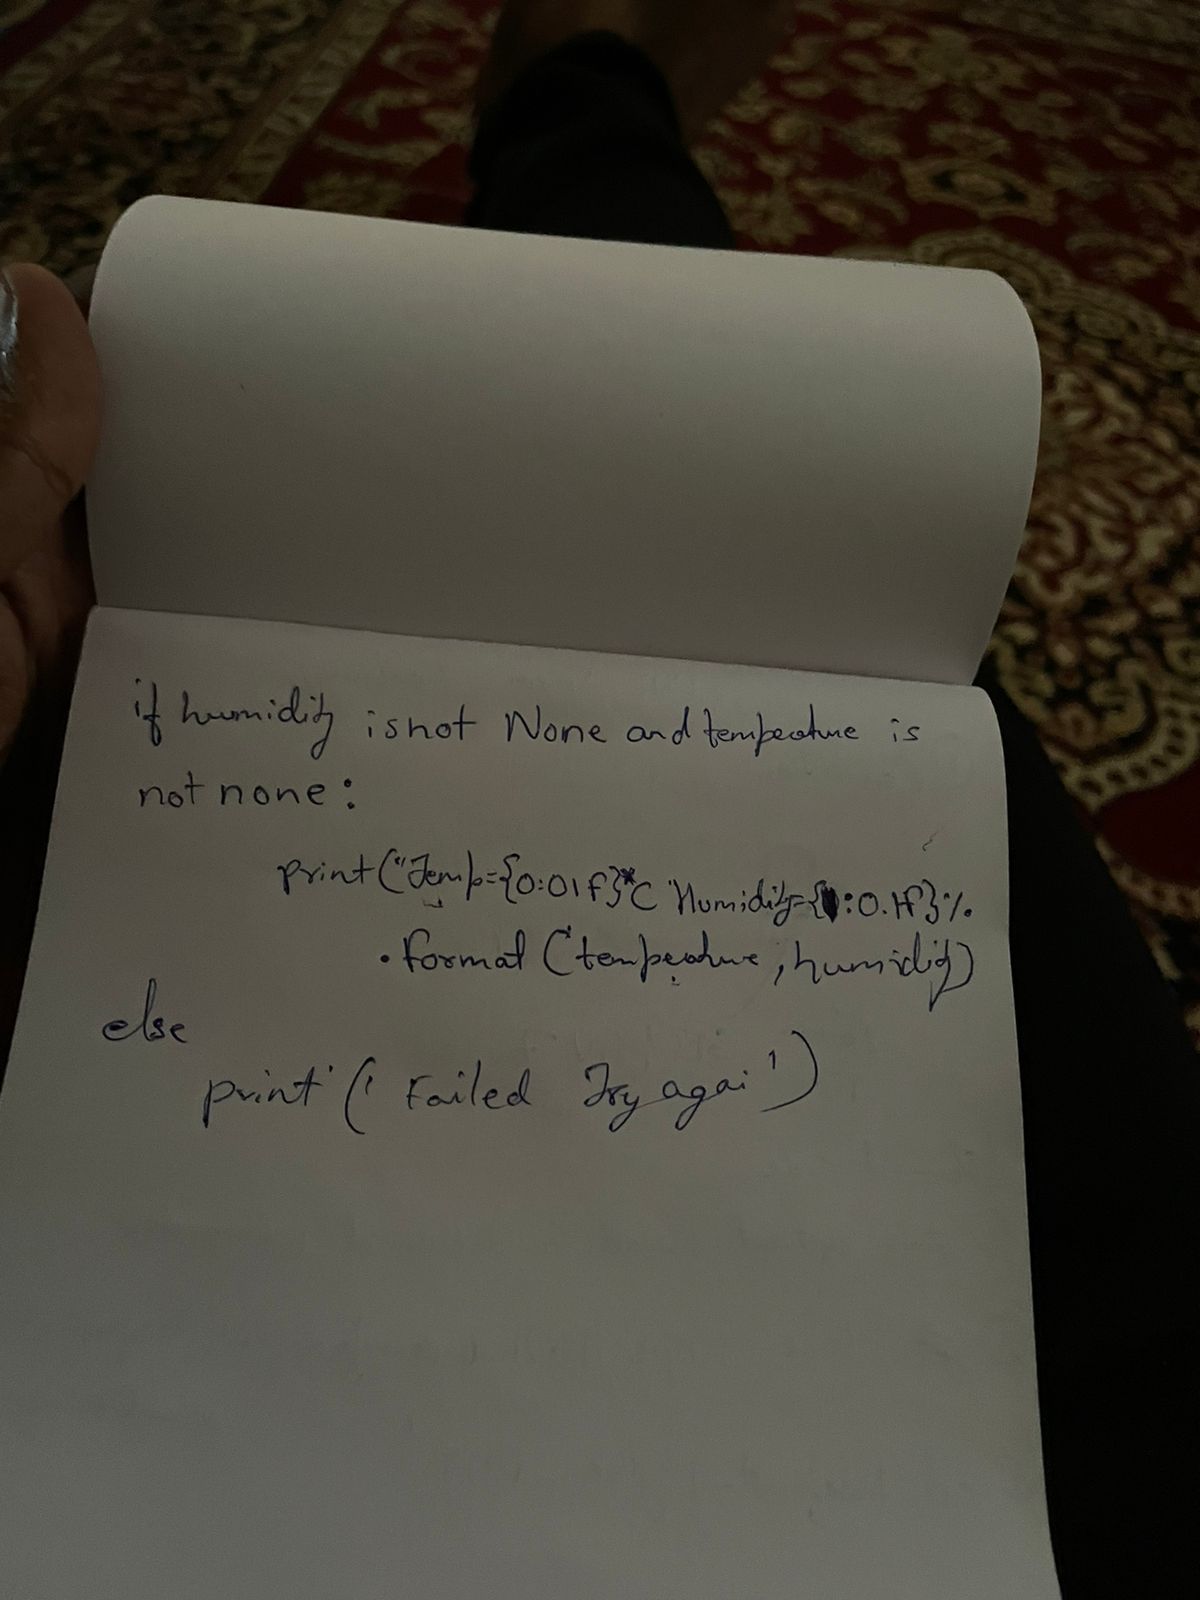 if humidity is not None and temperature is
not none:
print("Temp={0:01f}*C Humidity={1:0.1f}%
.format(temperature, humidity)
else
print('Failed Try agai')